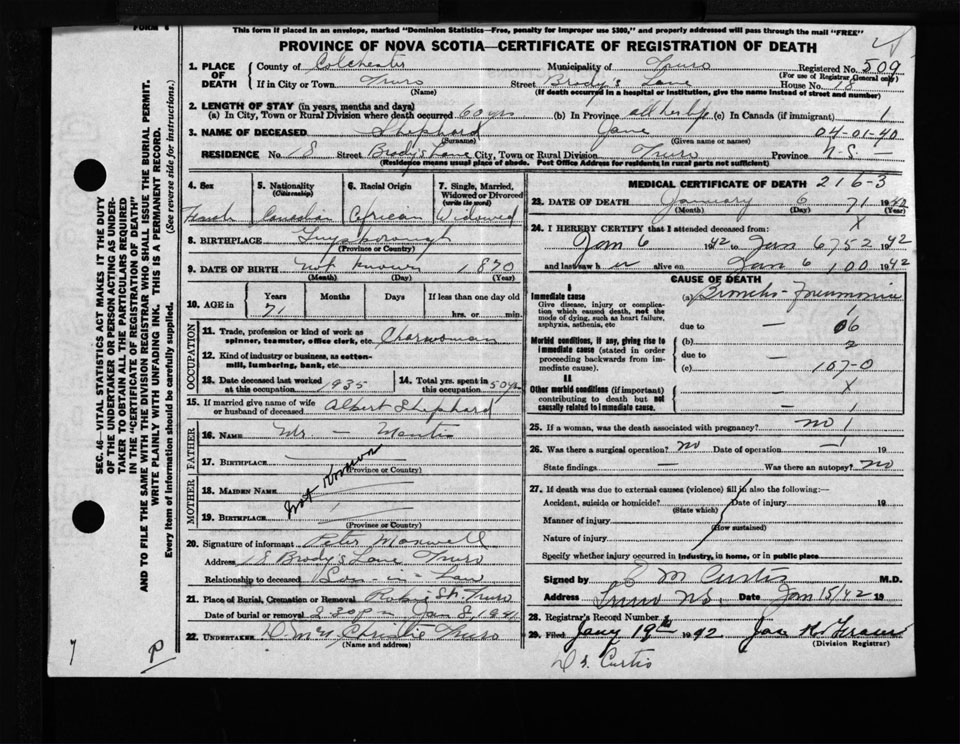 FORM 6
This form if placed in an envelope, marked "Dominion Statistics—Free, penalty for improper use $300," and properly addressed will pass through the mail "FREE"
PROVINCE OF NOVA SCOTIA—CERTIFICATE OF REGISTRATION OF DEATH
1. PLACE OF DEATH
County of Colchester Municipality of Truro Registered No. 509
(For use of Registrar General only)
If in City or Town Truro Street Brody's Lane House No. 18
(Name) (If death occurred in a hospital or institution, give the name instead of street and number)
2. LENGTH OF STAY (in years, months and days)
(a) In City, Town or Rural Division where death occurred 60 yrs (b) In Province all her life (c) In Canada (if immigrant) 1
3. NAME OF DECEASED Shephard Jane 04-01-40
(Surname) (Given name or names)
RESIDENCE No. 18 Street Brody's Lane City, Town or Rural Division Truro Province N.S. —
(Residence means usual place of abode. Post Office Address for residents in rural parts not sufficient)
4. Sex
Female
5. Nationality (Citizenship)
Canadian
6. Racial Origin
African
7. Single, Married, Widowed or Divorced (write the word)
Widowed
8. BIRTHPLACE Guysborough
(Province or Country)
9. DATE OF BIRTH not known 1870
(Month) (Day) (Year)
10. AGE in Years Months Days If less than one day
71 hrs. or min.
OCCUPATION
11. Trade, profession or kind of work as spinner, teamster, office clerk, etc. Charwoman
12. Kind of industry or business, as cotton-mill, lumbering, bank, etc.
13. Date deceased last worked at this occupation 1935
14. Total yrs. spent in this occupation 50 yrs
15. If married give name of wife or husband of deceased Albert Shephard
FATHER
16. NAME Mr. —
17. BIRTHPLACE
(Province or Country)
MOTHER
18. MAIDEN NAME
Not Known
19. BIRTHPLACE
(Province or Country)
20. Signature of informant Peter Maxwell
Address 18 Brody's Lane Truro
Relationship to deceased Son-in-Law
21. Place of Burial, Cremation or Removal Robie St. Truro
Date of burial or removal 2.30 pm Jan 8, 1941
22. UNDERTAKER Christie Truro
(Name and address)
MEDICAL CERTIFICATE OF DEATH 216-3
23. DATE OF DEATH January 6 71 1942
(Month) (Day) (Year)
24. I HEREBY CERTIFY that I attended deceased from: X
Jan 6 1942 to Jan 6 752 1942
and last saw her alive on Jan 6 100 1942
CAUSE OF DEATH
I
Immediate cause
Give disease, injury or complication which caused death, not the mode of dying, such as heart failure, asphyxia, asthenia, etc
(a) Broncho-Pneumonia
1
due to — 06
Morbid conditions, if any, giving rise to immediate cause (stated in order proceeding backwards from immediate cause).
(b) 2
due to —
(c) 107-0
II
Other morbid conditions (if important) contributing to death but not causally related to immediate cause.
— X
— 1
25. If a woman, was the death associated with pregnancy? no 1
26. Was there a surgical operation? no Date of operation — 19
State findings — Was there an autopsy? no
27. If death was due to external causes (violence) fill in also the following:—
Accident, suicide or homicide? Date of injury 19
(State which)
Manner of injury
(How sustained)
Nature of injury
Specify whether injury occurred in industry, in home, or in public place
Signed by M Curtis M.D.
Address Truro NS. Date Jan 15/42 19
28. Registrar's Record Number
29. Filed Jany 19th 1942
(Division Registrar)
Dr. Curtis
SEC. 46—VITAL STATISTICS ACT MAKES IT THE DUTY
OF THE UNDERTAKER OR PERSON ACTING AS UNDERTAKER
TO OBTAIN ALL THE PARTICULARS REQUIRED
IN THE "CERTIFICATE OF REGISTRATION OF DEATH"
AND TO FILE THE SAME WITH THE DIVISION REGISTRAR WHO SHALL ISSUE THE BURIAL PERMIT.
WRITE PLAINLY WITH UNFADING INK. THIS IS A PERMANENT RECORD.
Every item of information should be carefully supplied. (See reverse side for instructions.)
7 P